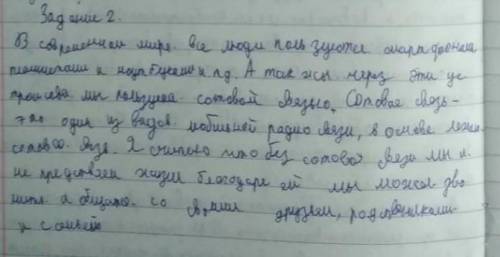 Задание 2.
В современном мире все люди пользуются смартфонами
планшетами и ноутбуками и пд. А так же через эти ус
тройства мы пользуемся сотовой связью. Сотовая связь -
это один из видов мобильной радио связи, в основе лежит
сотовая Я считаю что без сотовой связи мы и
не представляем жизни благодаря ей мы можем зво
нить и общатся со своими друзьями, родственниками
и с семьей